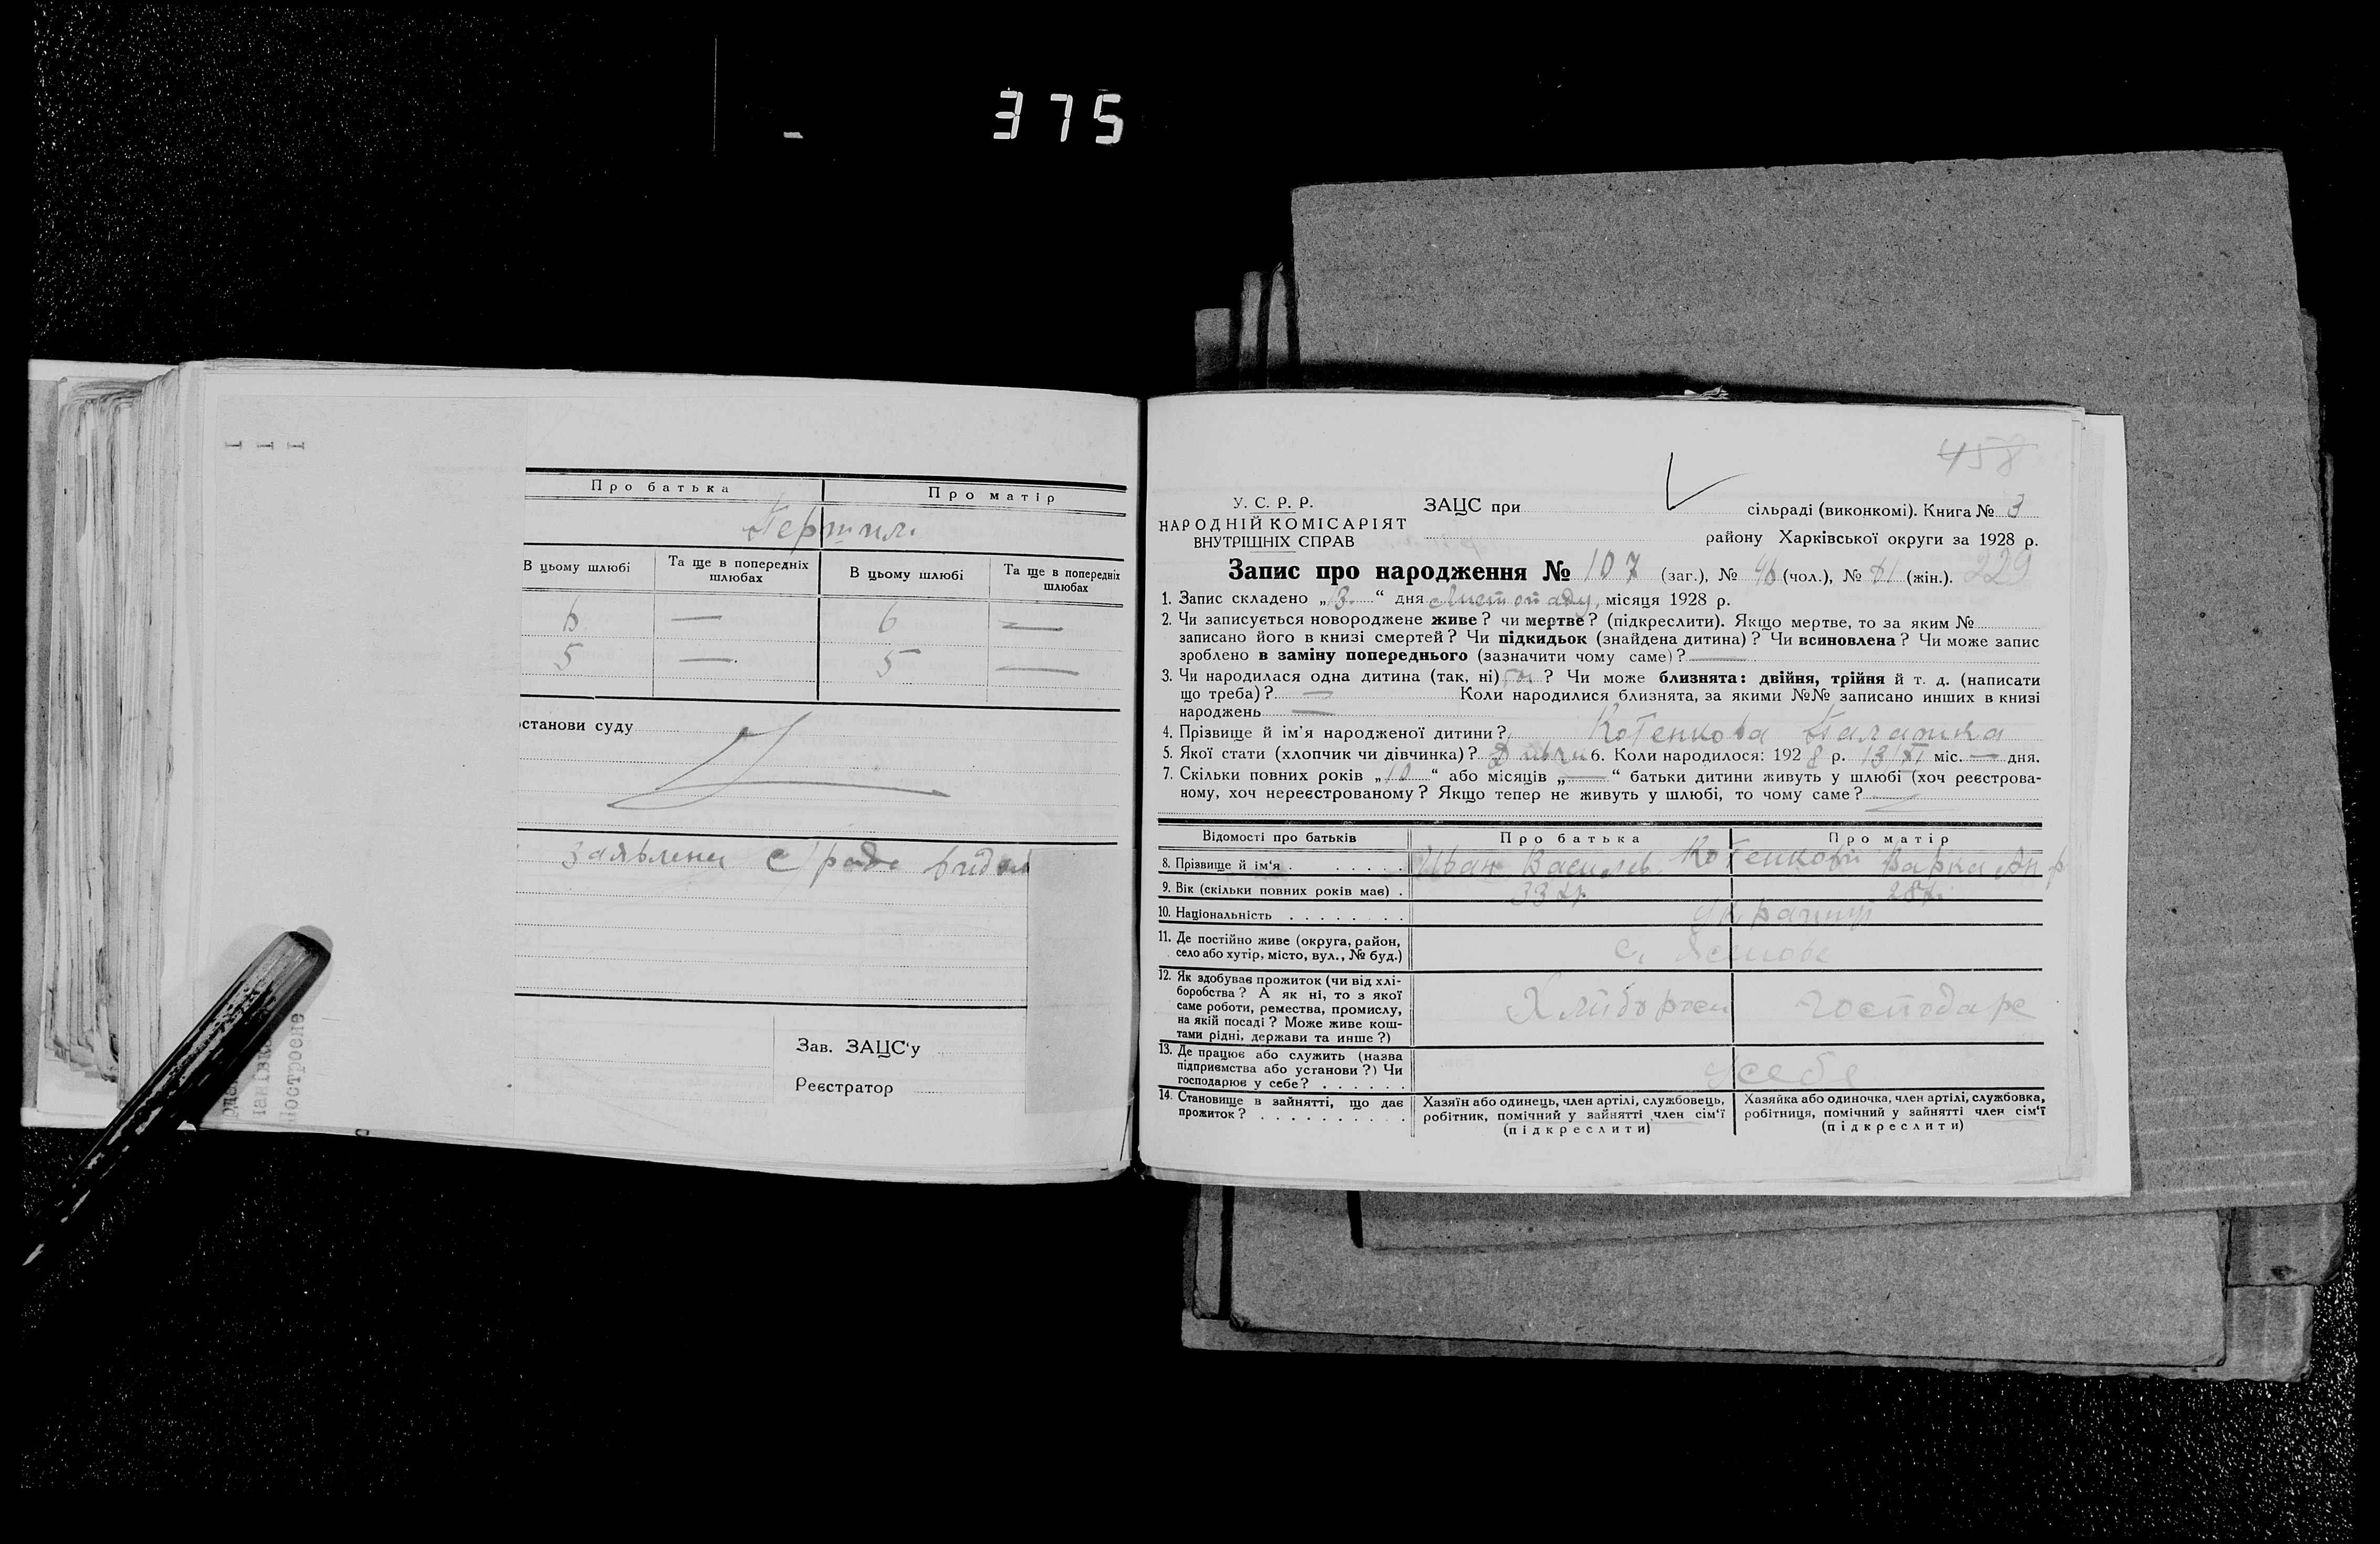 375
Про батька Про матір
Перший
В цьому шлюбі Та ще в попередніх шлюбах В цьому шлюбі Та ще в попередніх шлюбах
6 — 6 —
5 — 5 —
останови суду
заявлена
Зав. ЗАЦС'у
Реєстратор
458
У. С. Р. Р.
НАРОДНІЙ КОМІСАРІЯТ
ВНУТРІШНІХ СПРАВ
ЗАЦС при сільраді (виконкомі). Книга № 3
району Харківської округи за 1928 р.
Запис про народження № 107 (заг.), № 46 (чол.), № 61 (жін.). 229
1. Запис складено „13.“ дня Листопаду, місяця 1928 р.
2. Чи записується новороджене живе? чи мертве? (підкреслити). Якщо мертве, то за яким №
записано його в книзі смертей? Чи підкидьок (знайдена дитина)? Чи всиновлена? Чи може запис
зроблено в заміну попереднього (зазначити чому саме)? —
3. Чи народилася одна дитина (так, ні) ? Чи може близнята: двійня, трійня й т. д. (написати
що треба)? — Коли народилися близнята, за якими №№ записано инших в книзі
народжень —
4. Прізвище й ім'я народженої дитини? Котенкова
5. Якої стати (хлопчик чи дівчинка)? 6. Коли народилося: 1928 р. 13/XI міс. — дня.
7. Скільки повних років „10“ або місяців „—“ батьки дитини живуть у шлюбі (хоч реєстрова-
ному, хоч нереєстрованому? Якщо тепер не живуть у шлюбі, то чому саме?
Відомості про батьків Про батька Про матір
8. Прізвище й ім'я . Иван Василев Котенкови Варка
9. Вік (скільки повних років має) . 33 28
10. Національність Українці
11. Де постійно живе (округа, район,
село або хутір, місто, вул., № буд.) с.
12. Як здобуває прожиток (чи від хлі-
боробства? А як ні, то з якої
саме роботи, ремества, промислу,
на якій посаді? Може живе кош-
тами рідні, держави та инше?)
13. Де працює або служить (назва
підприємства або установи?) Чи
господарює у себе? у себе
14. Становище в зайнятті, що дає
прожиток?
Хазяїн або одинець, член артілі, службовець,
робітник, помічний у зайнятті член сім'ї
(підкреслити)
Хазяйка або одиночка, член артілі, службовка,
робітниця, помічний у зайнятті член сім'ї
(підкреслити)